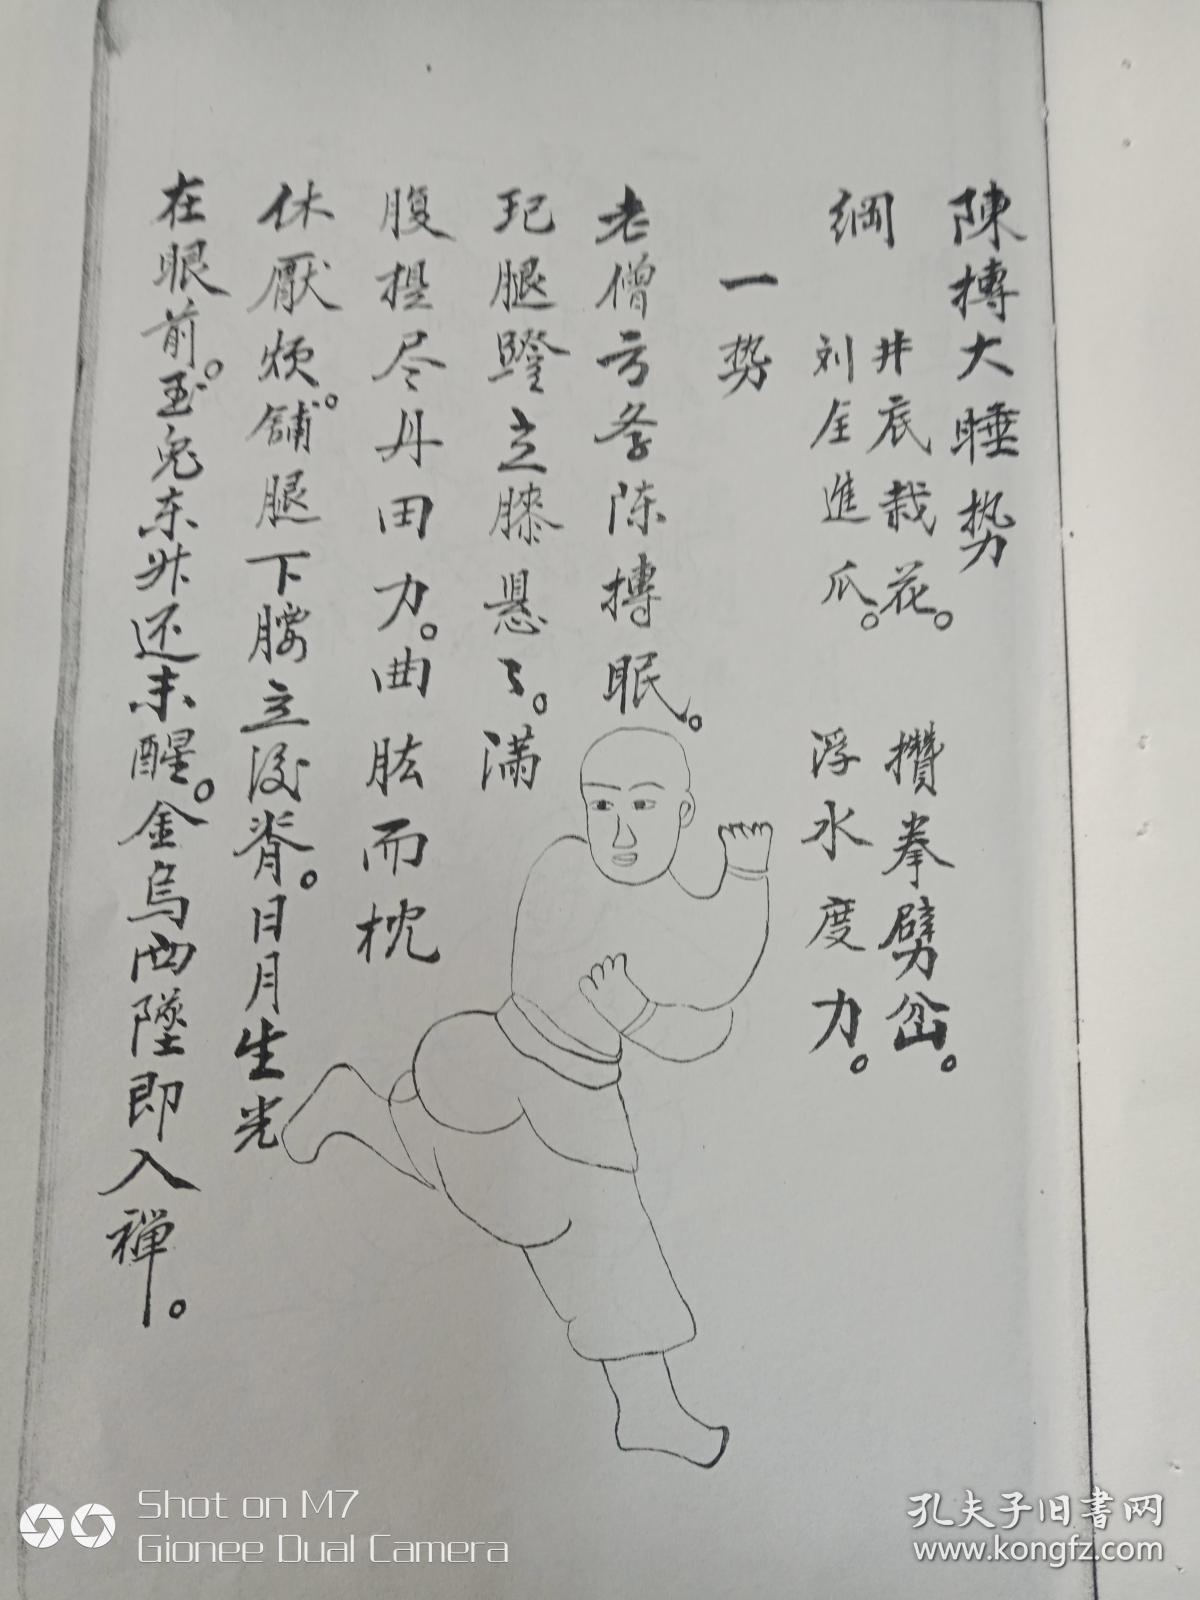 陳摶大睡势
綱 井底栽花。 攢拳劈岔。
刘全進瓜。 浮水度力。
一势
老僧方 陈摶眠。
腿蹬立膝悬〻。满
腹提尽丹田力。曲肱而枕
休厭烦。舖腿下腰立後脊。日月生光
在眼前。玉兔东升还未醒。金烏西墜即入禅。
Shot on M7
Gionee Dual Camera
孔夫子旧書网
www.kongfz.com